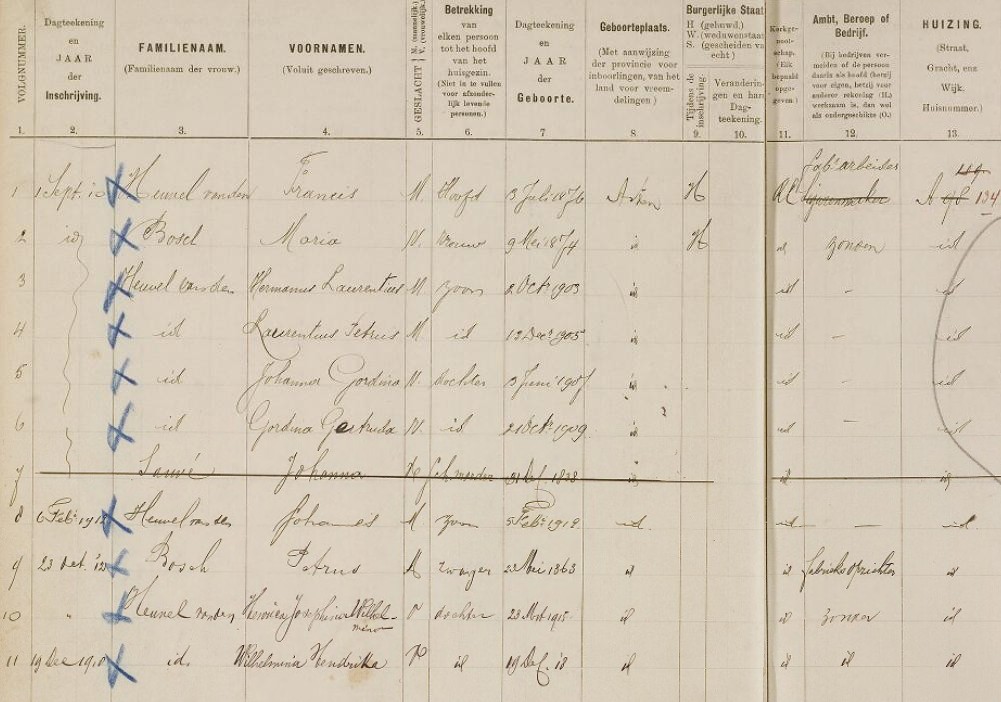 VOLGNUMMER. 1.
Dagteekening en JAAR der Inschrijving. 2.
FAMILIENAAM. (Familienaam der vrouw.) 3.
VOORNAMEN. (Voluit geschreven.) 4.
GESLACHT M. (mannelijk.) V. (vrouwelijk.) 5.
Betrekking van elken persoon tot het hoofd van het huisgezin. (Niet in te vullen voor afzonderlijk levende personen.) 6.
Dagteekening en JAAR der Geboorte. 7
Geboorteplaats. (Met aanwijzing der provincie voor inboorlingen, van het land voor vreemdelingen) 8
Burgerlijke Staat H (gehuwd.) W. (weduwenstaat S. (gescheiden va echt)
Tijdens de inschrijving. 9.
Veranderin- gen en hare Dag- teekening. 10.
Kerkge- noot- schap. (Elk bepaald opge- geven.) 11.
Ambt, Beroep of Bedrijf. (Bij bedrijven vermelden of de persoon daarin als hoofd (hetzij voor eigen, hetzij voor anderer rekening (H.) werkzaam is, dan wel als ondergeschikte (O.) 12.
HUIZING. (Straat, Gracht, enz Wijk. Huisnummer.) 13.
1 1 Sept. 10 Heuvel van den Francis M. Hoofd 3 Juli 1876 Asten H RC fabr. arbeider A 134
2 id Bosch Maria V. vrouw 9 Mei 1874 id H id zonder id
3 Heuvel van den Hermanus Laurentius M zoon 2 Octr 1903 id id - id
4 id Laurentius Petrus M. id 12 Decr 1905 id id - id
5 id Johanna Gordina V. dochter 3 Juni 1907 id id - id
6 id Gordina Gertruda V. id 21 Octr 1909 id id - id
7 Johanna id id
8 6 Febr 1912 Heuvel van den Johannes M zoon 5 Febr 1912 id. id — id
9 23 Oct. '12 Bosch Petrus M zwager 22 Mei 1863 id id fabrieksopzichter id
10 " Heuvel van den Josephina Wilhelmina V dochter 1915 id id zonder id
11 19 Dec 1918 id. Wilhelmina Hendrika V id 19 Dec. '18 id id id id